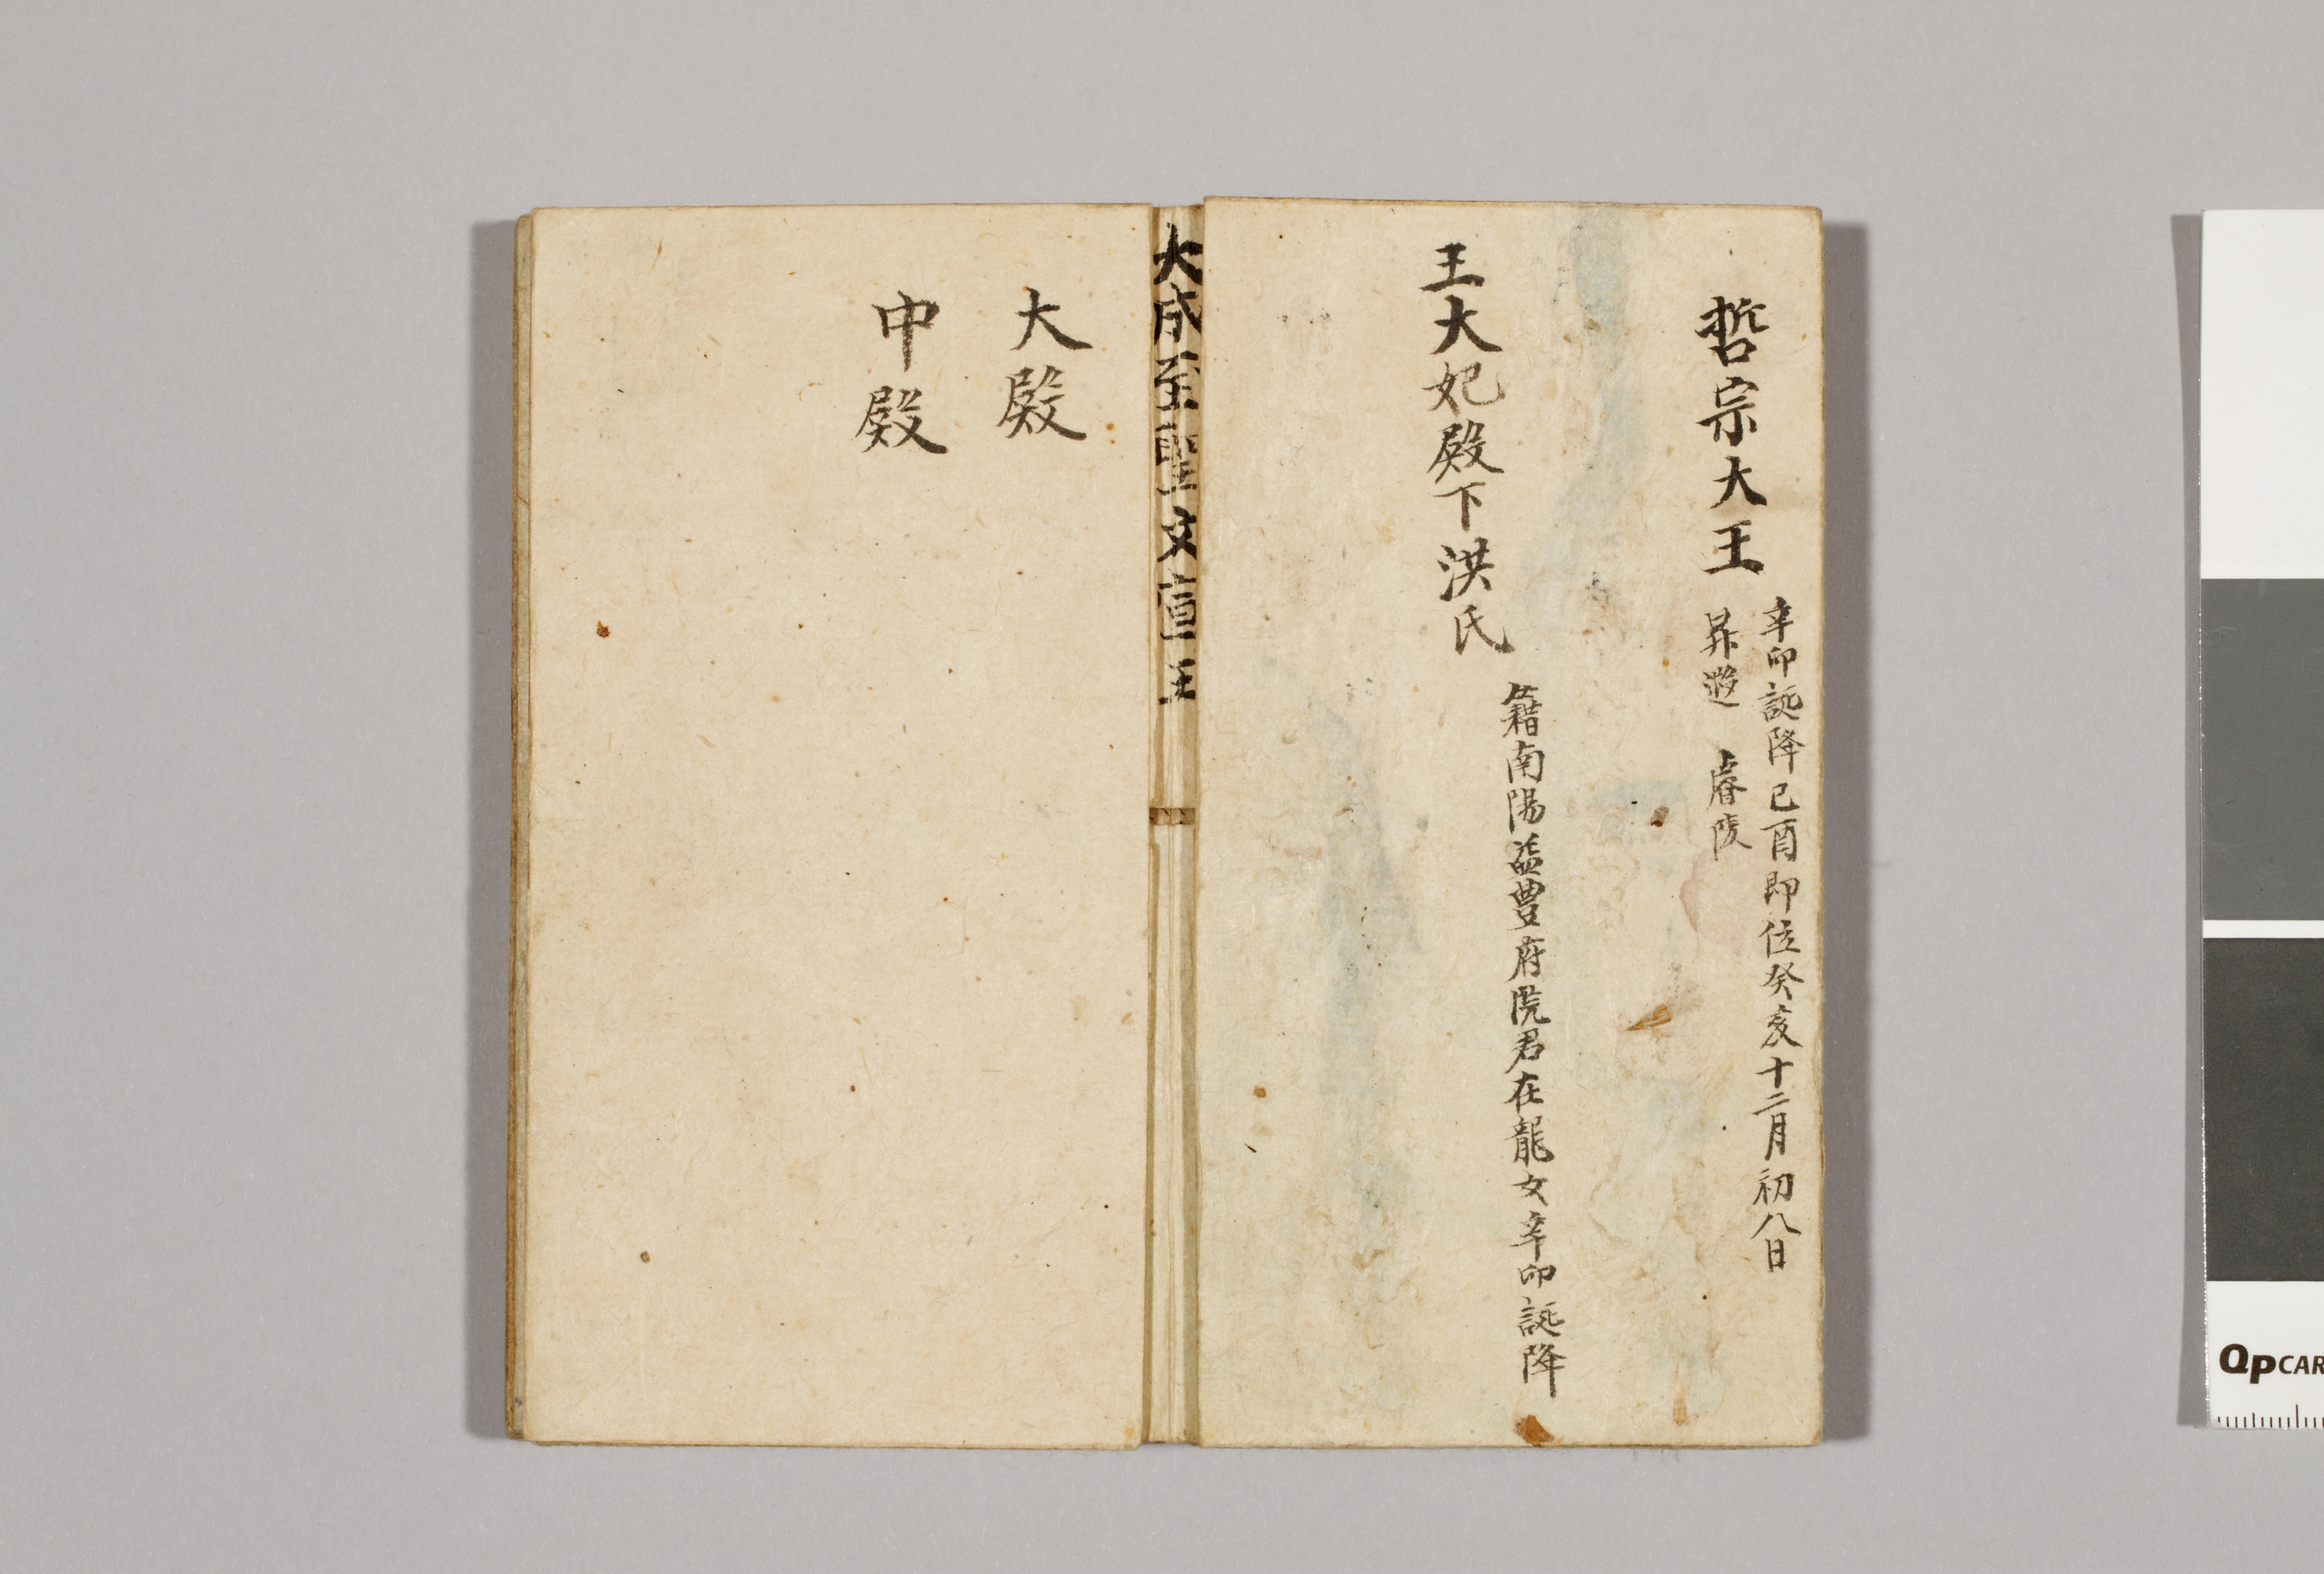 哲宗大王
辛卯誕降己酉即位癸亥十二月初八日
昇遐 睿陵
王大妃殿下洪氏
籍南陽益豊府院君在龍女辛卯誕降
大成至聖文宣王
大殿
中殿
QPCAR